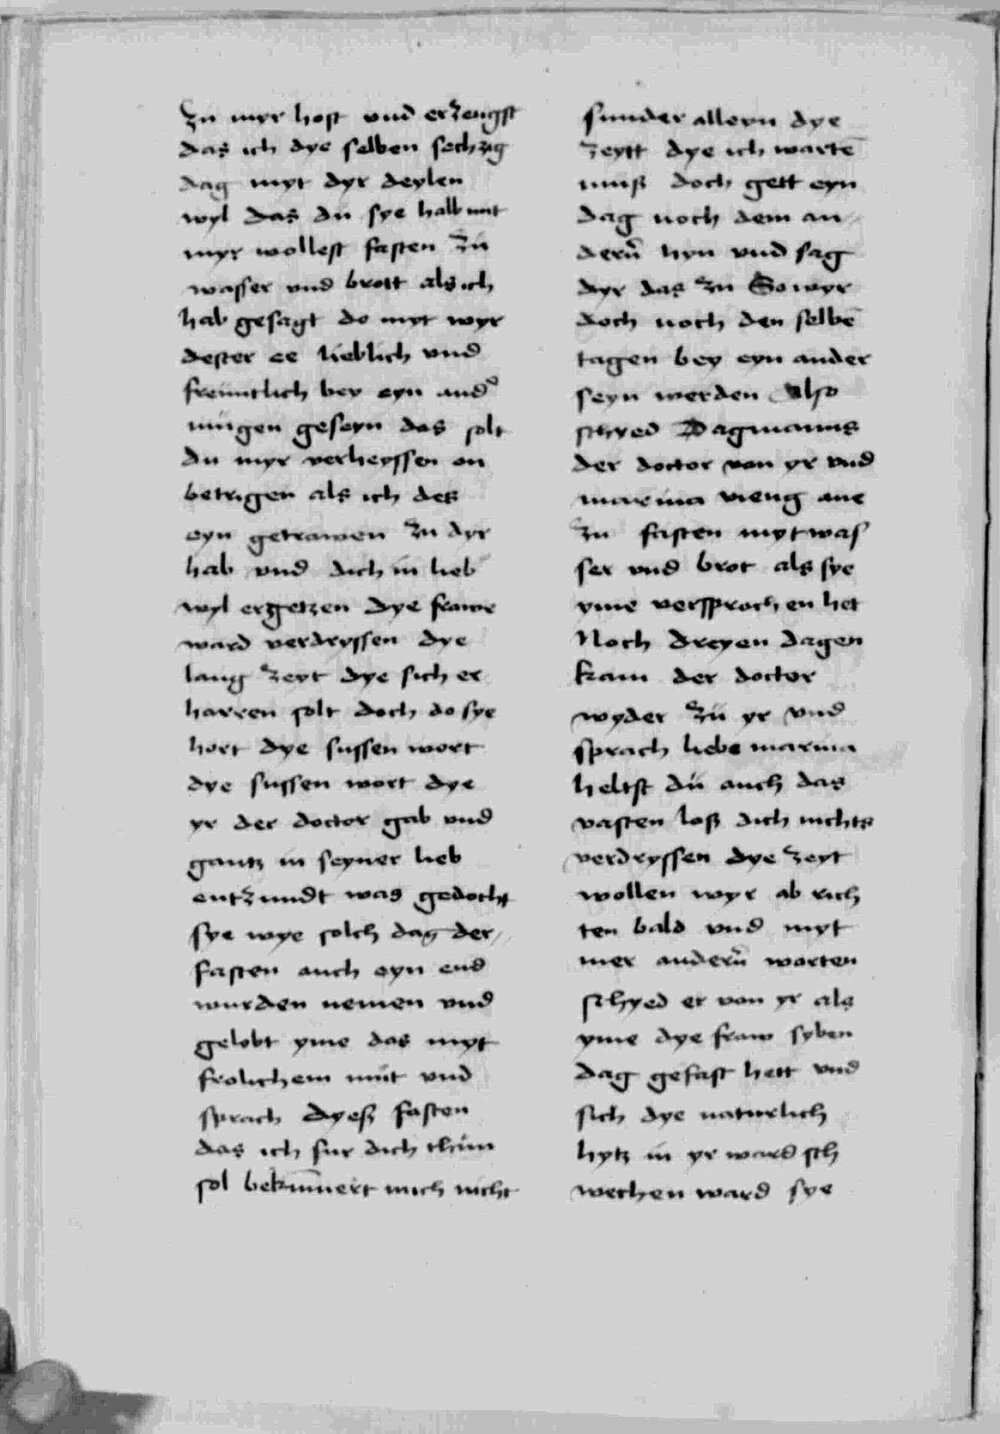 zu myr host vnd erzeugst
das ich dye selben sechzig
dag myt dyr deylen
wyl das du sye halb mit
myr wollest fasten zu
wasser vnd brott als ich
hab gesagt do myt wyr
dester ee lieblich vnd
freuntlich bey eyn and͛
mugen geseyn das solt
du myr verheyssen on
betrigen als ich des
eyn getrawen zu dyr
hab vnd dich in lieb
wyl ergetzen Dye frawe
ward verdryssen dye
lang zeyt dye sich er
harren solt doch do sye
hort dye sussen wort
dye sussen wort dye
yr der doctor gab vnd
gantz in seyner lieb
entzundt was gedocht
sye wye solch dag der//
fasten auch eyn end
wurden nemen vnd
gelobt yme das myt
frolichem mut vnd
sprach Dyeß fasten
das ich fur dich thun
sol bekūmert mich nicht
sunder alleyn dye
zeytt dye ich wartē
muß doch gett eyn
dag noch dem an//
dern̄ hyn vnd sag
dyr das zu So wyr
doch noch den selbē
tagen bey eyn ander
seyn werden Also
schyed Dagmanus
der doctor von yr vnd
marina vieng ane
zu fasten myt was
ser vnd brot als sye
yme versprochen het
Noch dreyen dagen
kam der doctor
wyder zu yr vnd
sprach liebe marina
heltst du auch das
vasten loß dich nichts
verdryssen dye zeyt
wollen wyr ab rich
ten bald vnd myt
mer andern̄ worten
schyed er von yr als
yme dye fraw syben
dag gefast hett vnd
sich dye naturlich
hytz in yr ward sch
wechen ward sye